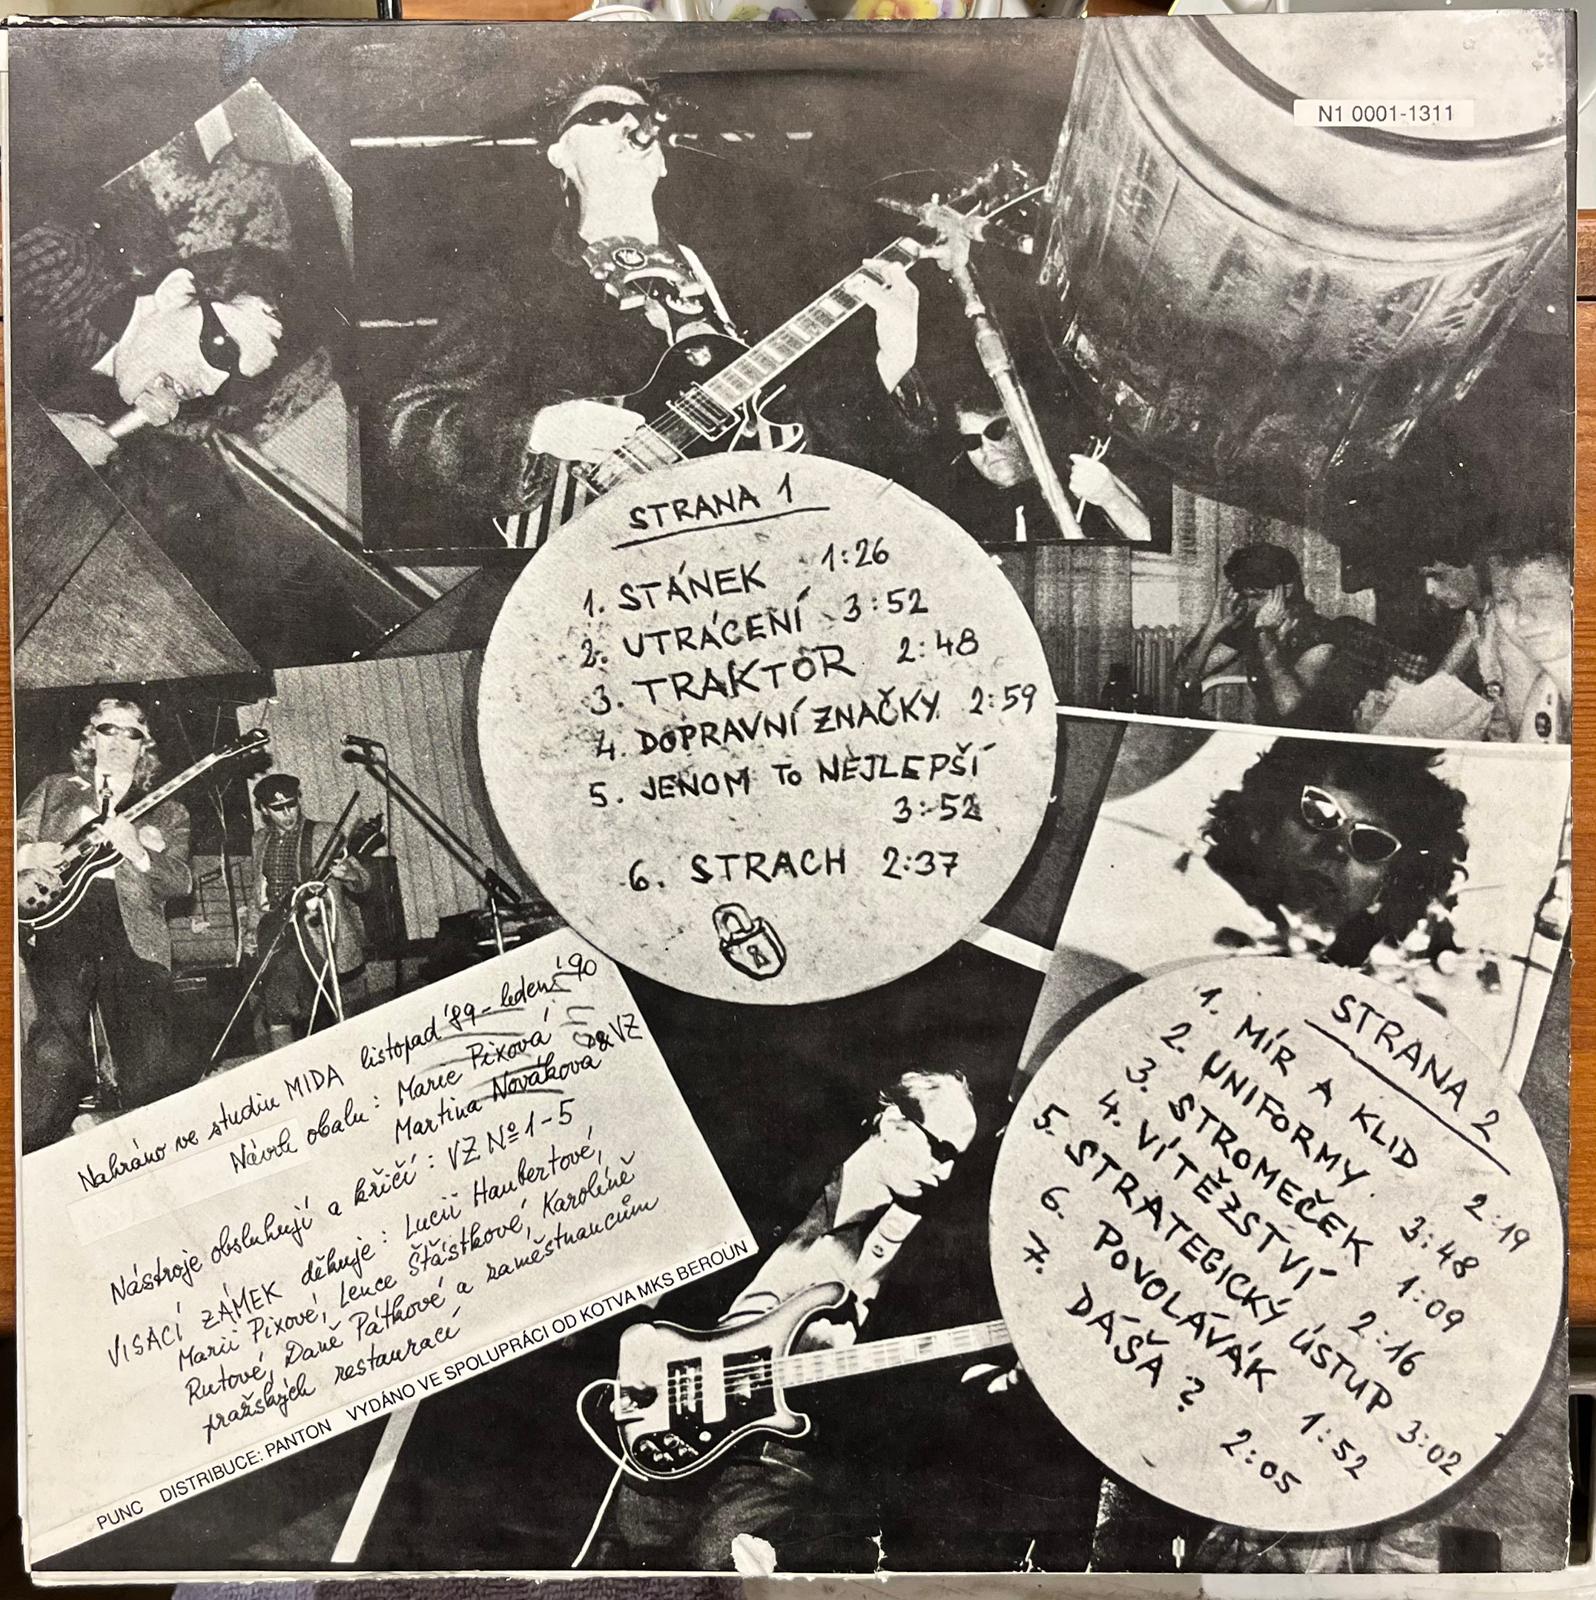 N1 0001-1311
STRANA 1
1. STÁNEK 1:26
2. UTRÁCENÍ 3:52
3. TRAKTOR 2:48
4. DOPRAVNÍ ZNAČKY 2:59
5. JENOM TO NEJLEPŠÍ
3:52
6. STRACH 2:37
STRANA 2
1. MÍR A KLID 2:19
2. UNIFORMY 3:48
3. STROMEČEK 1:09
4. VÍTĚZSTVÍ 2:16
5. STRATEGICKÝ ÚSTUP 3:02
6. POVOLÁVÁK 1:52
7. DÁŠA? 2:05
Nahráno ve studiu MIDA listopad '89 - leden '90
Návrh obalu: Marie Pixová
Martina Nováková & VZ
Nástroje obsluhují a křičí: VZ Nº 1-5
VISACÍ ZÁMEK děkuje: Lucii Haubertové,
Marii Pixové, Lence Šťástkové, Karolíně
Rutové, Daně Pátkové a zaměstnancům
pražských restaurací
PUNC DISTRIBUCE: PANTON VYDÁNO VE SPOLUPRÁCI OD KOTVA MKS BEROUN